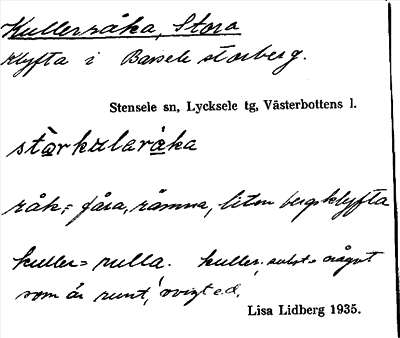 Kullerråka, Stora
Klyfta i Barsele storberg.
Stensele sn, Lycksele tg, Västerbottens l.
stòrkularàka
råk = fåra, rämna, liten bergsklyfta
kuller = rulla. kuller, subst = något
som är runt, ovigt e.d.
Lisa Lidberg 1935.